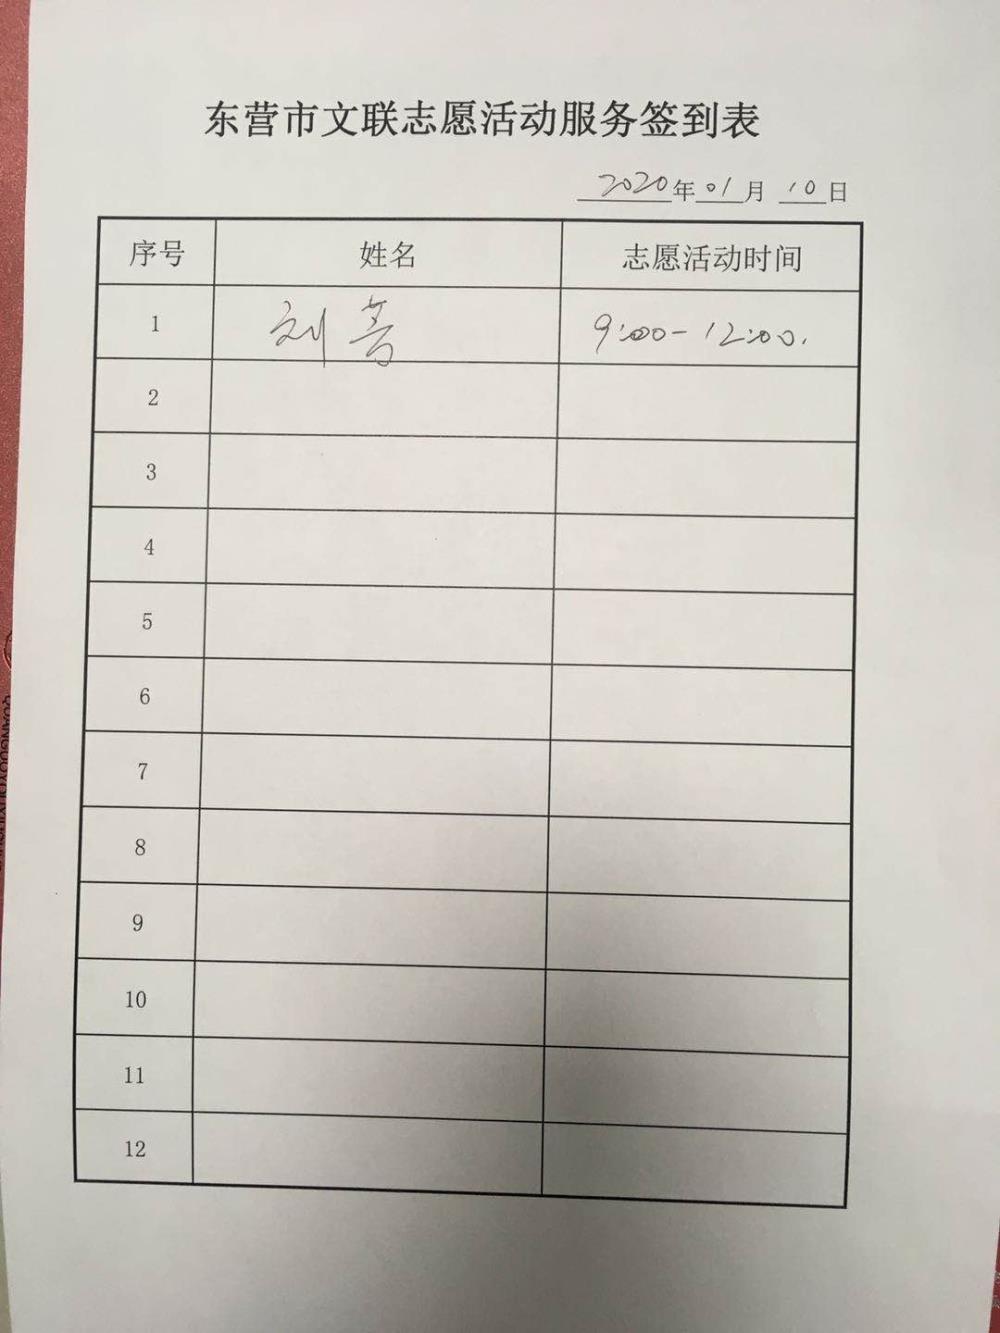 东营市文联志愿活动服务签到表
2020年01月10日
序号 姓名 志愿活动时间
1 刘 9:00-12:00.
2
3
4
5
6
7
8
9
10
11
12